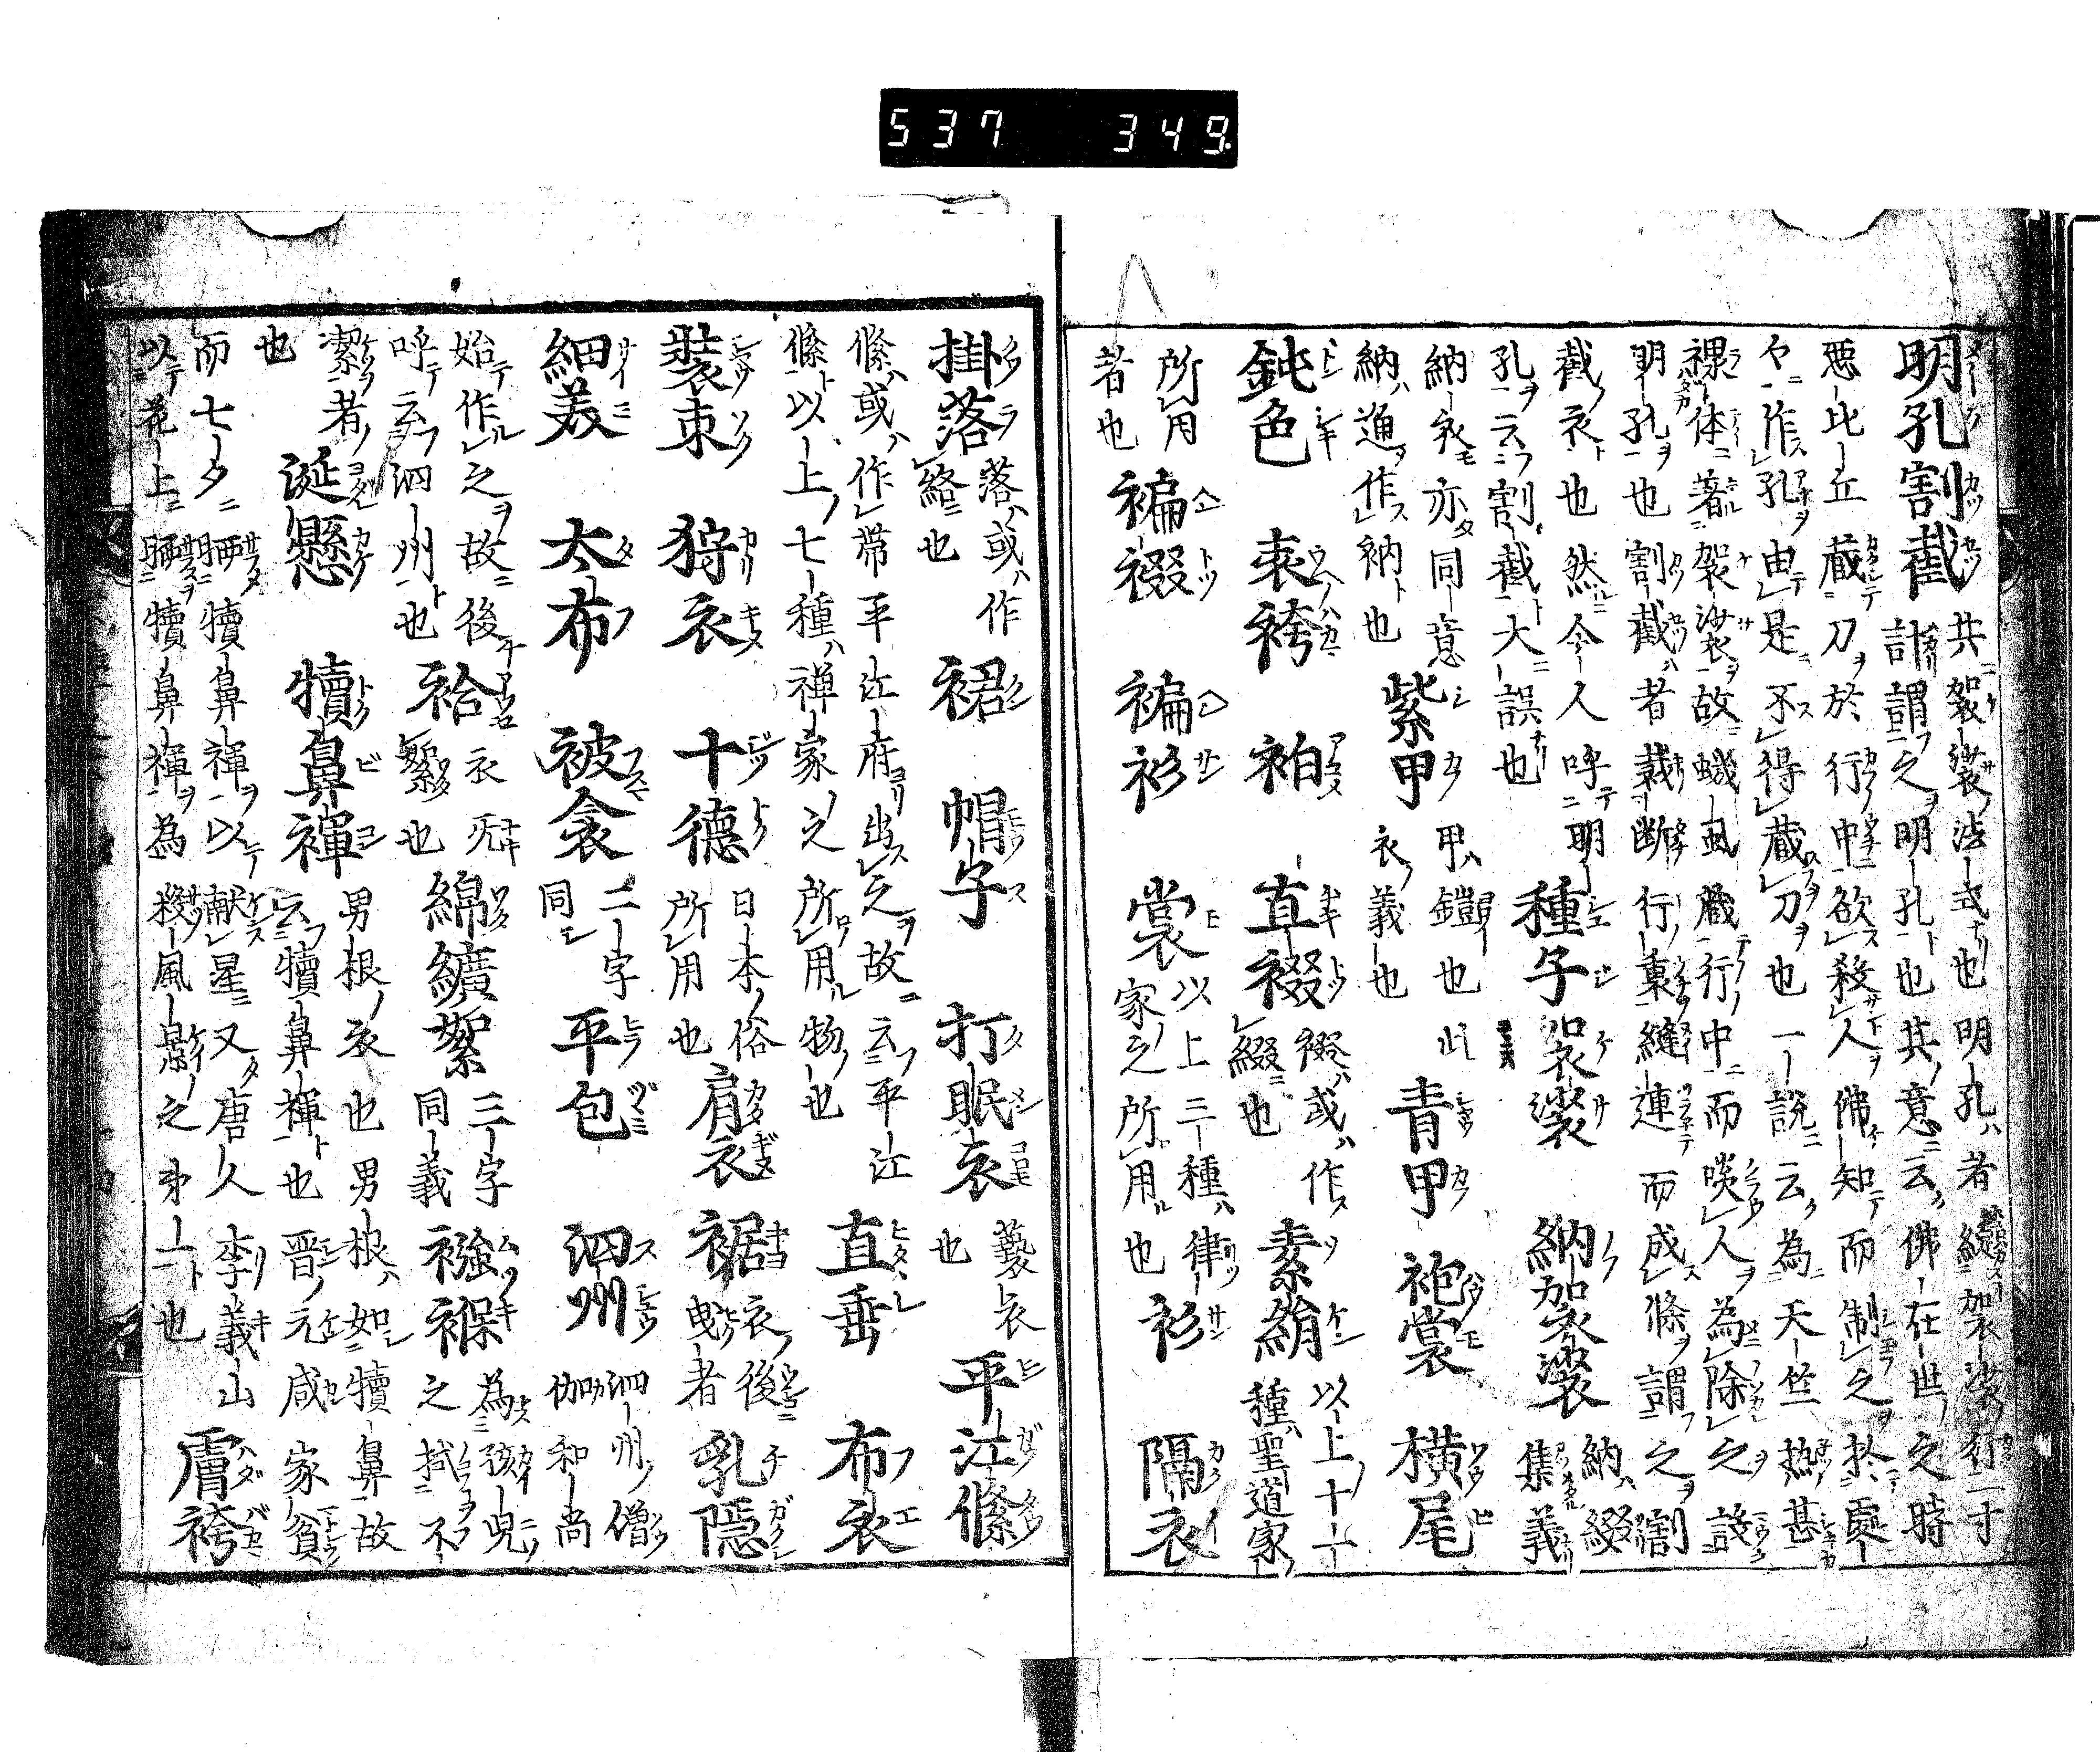 537 349.
明孔割截 共袈裟法式也明孔者縫袈裟行一寸
計謂之明孔也其意云佛在世之時
悪比丘蔵刀於行中欲殺人佛知而制之於處
々作孔由是不得蔵刀也一説云為天竺熱甚
裸体著袈裟故蟣虱蔵行中而啖人為除之設
明孔也割截者裁断行裏縫連而成條謂之割
截衣也然今人呼明
孔云割截大誤也
種子袈裟 納袈裟 納綴集義
納衣亦同意
納通作衲也
紫甲 甲鎧也此衣義也
青甲 袍裳 横尾
鈍色 表袴 袙 直綴 綴或作綴也
素絹 以上十一種聖道家
所用
者也
褊裰 褊衫 裳 以上三種律家之所用也
衫 隔衣
掛落 落或作絡也
裙 帽子 打眠衣 褻衣也
平江絛
絛或作帯平江府出之故云平江
絛以上七種禅家之所用物也
直垂 布衣
装束 狩衣 十徳 日本俗所用也
肩衣 裾 衣後曳者
乳隠
細美 太布 被衾 二字同
平包 泗州 泗州僧伽和尚
始作之故後
呼云泗州也
袷 衣无絮也
綿纊絮 三字同義
襁褓 為孩児之拭不
潔者也
涎懸 犢鼻褌 男根衣也男根如犢鼻故
云犢鼻褌也晋元咸家貧
而七夕晒犢鼻褌以献星又唐人李義山
以花上晒犢鼻褌為殺風景之第一也
膚袴